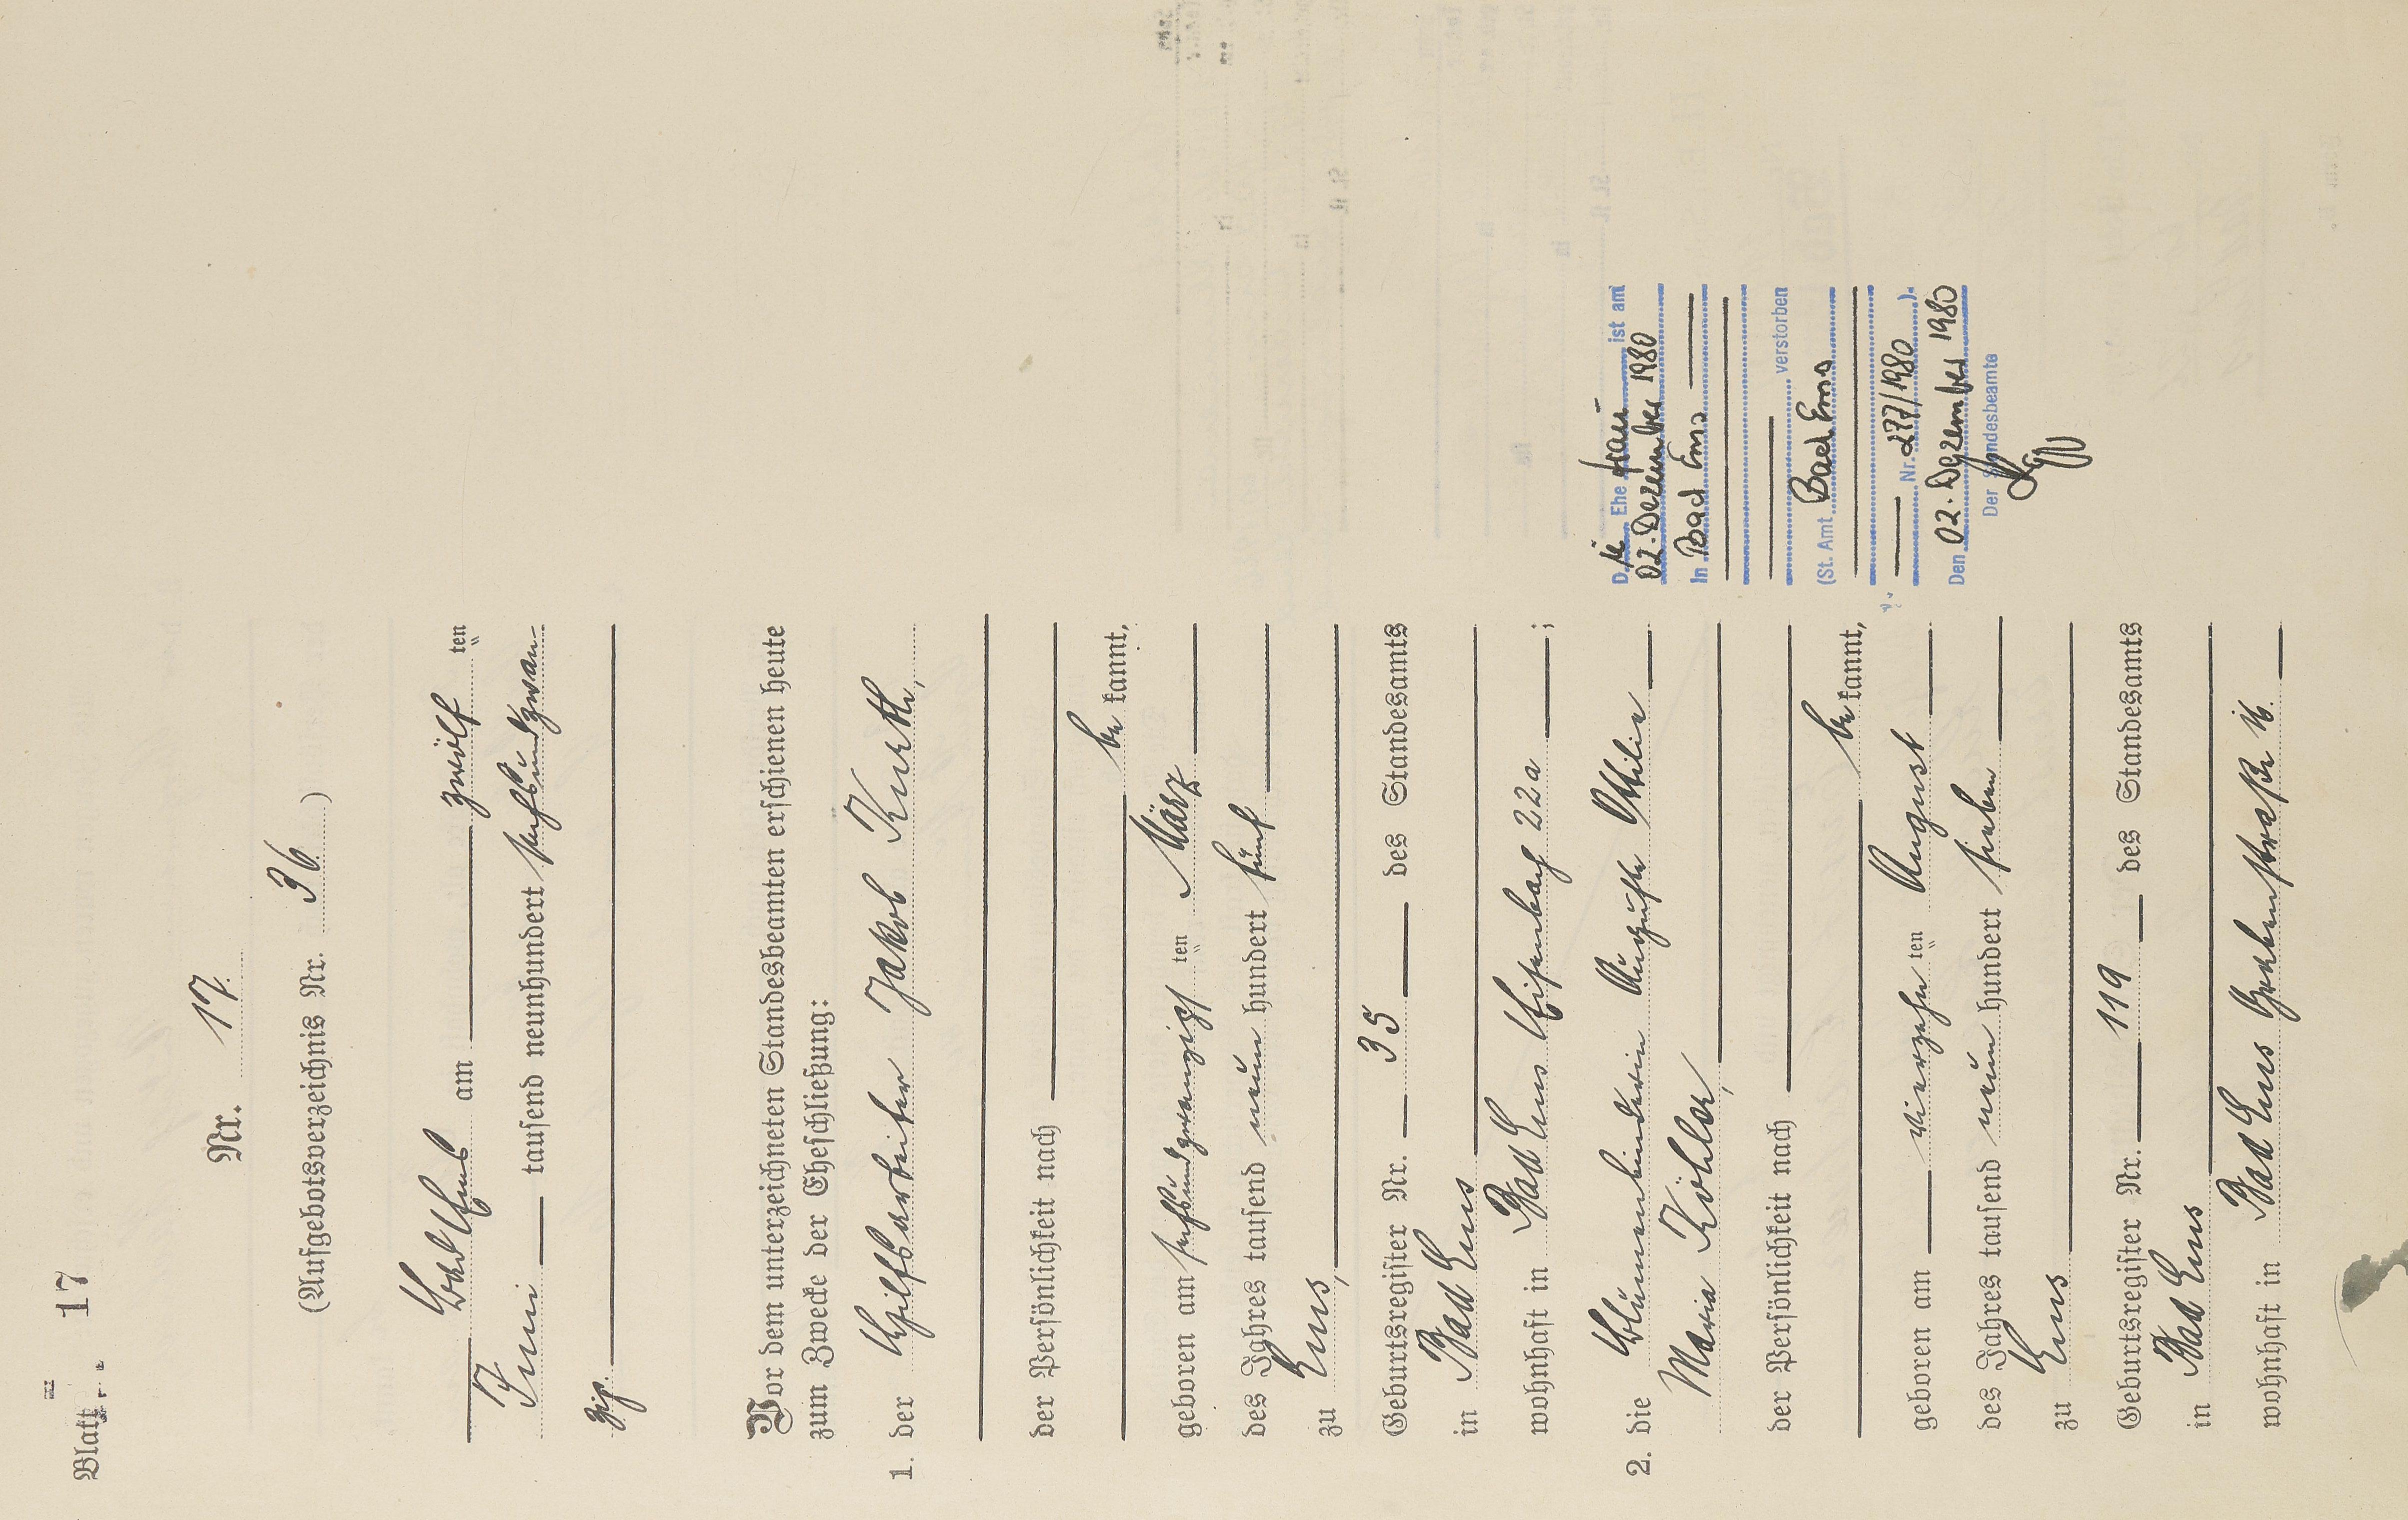 Blatt 17
Nr. 17.
(Aufgebotsverzeichnis Nr. 36.)
Bad Ems am zwölf ten
Juni tausend neunhundert sechsundzwan-
zig.
Vor dem unterzeichneten Standesbeamten erschienen heute
zum Zwecke der Eheschließung:
1. der Hilfsarbeiter Jakob Kurth,
der Persönlichkeit nach
be kannt,
geboren am sechsundzwanzigs ten März
des Jahres tausend neun hundert fünf
zu Ems,
Geburtsregister Nr. 35 des Standesamts
in Bad Ems
wohnhaft in Bad Ems Eisenbach 22a ;
2. die Blumenbinderin Auguste Ottilie
Maria Köhler,
der Persönlichkeit nach
be kannt,
geboren am vierzehn ten August
des Jahres tausend neun hundert sieben
zu Ems
Geburtsregister Nr. 119 des Standesamts
in Bad Ems
wohnhaft in Bad Ems Grabenstraße 16.
Die Ehefrau ist am
02. Dezember 1980
In Bad Ems
verstorben
(St. Amt Bad Ems
Nr. 277/1980 ).
Den 02. Dezember 1980
Der Standesbeamte